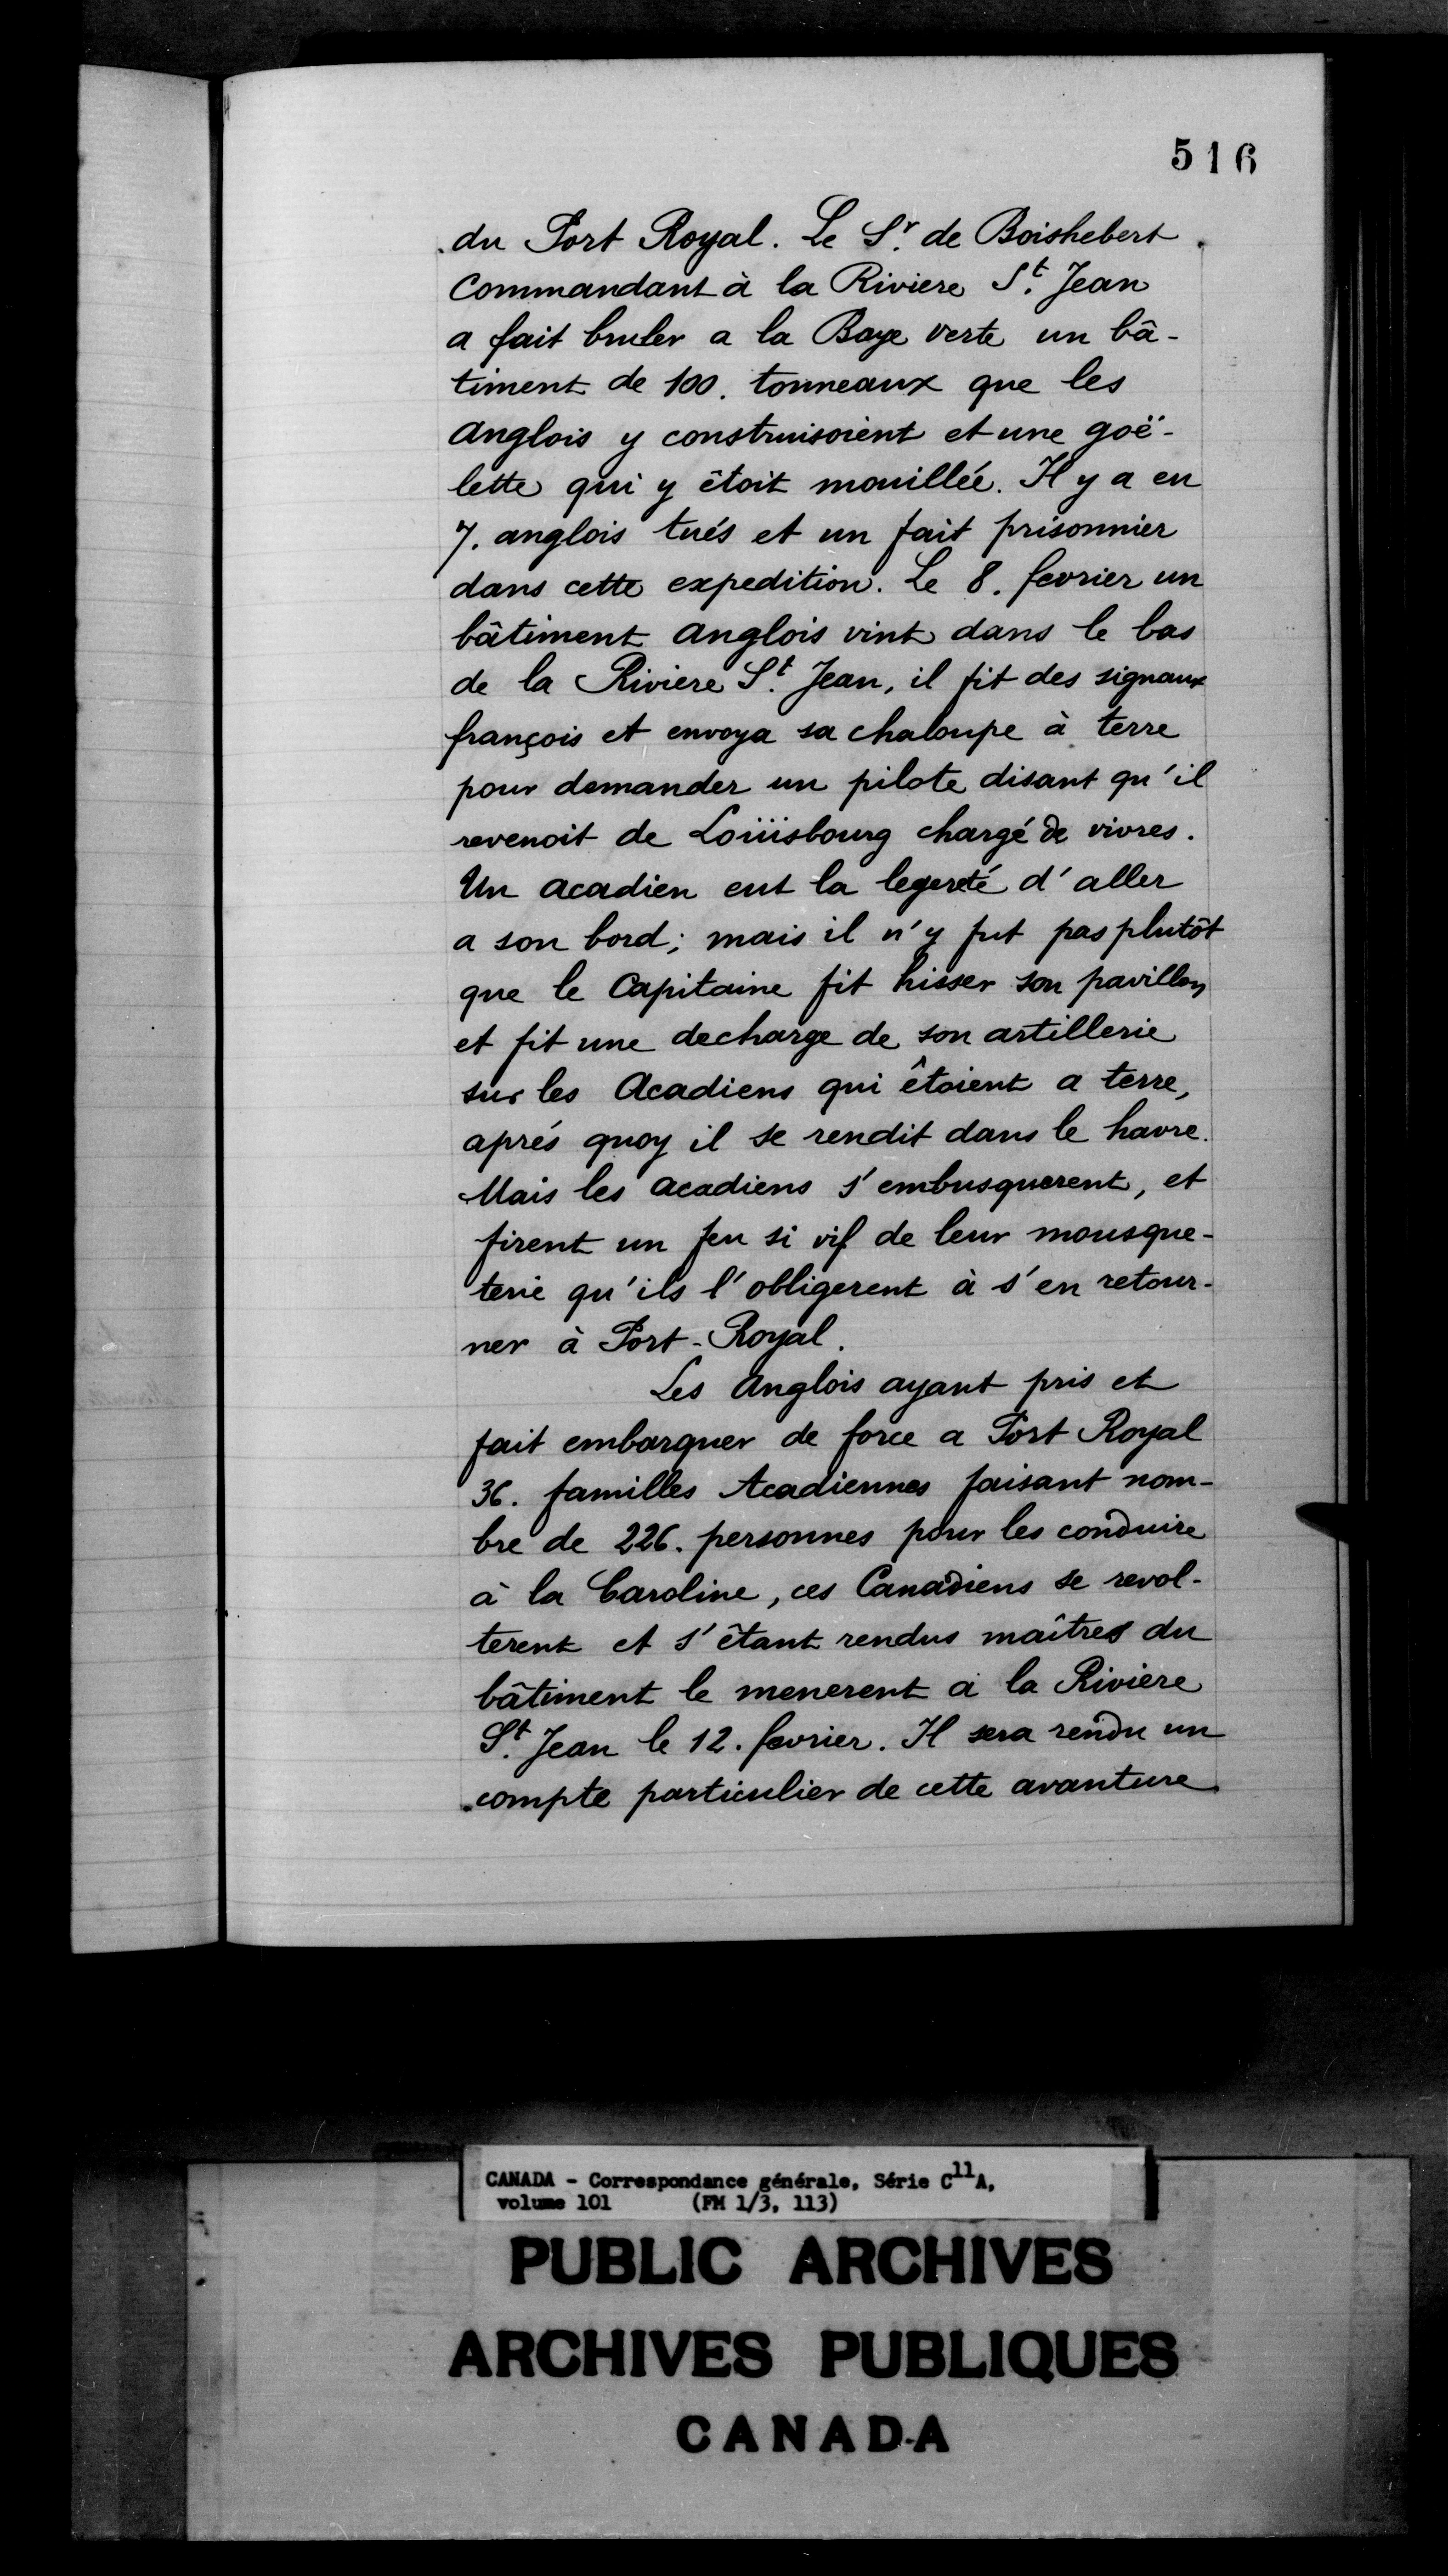 516
du Port Royal. Le Sr. de Boishebert
Commandant à la Riviere St. Jean
a fait bruler a la Baye verte un bâ-
timent de 100. tonneaux que les
anglois y construisoient et une goë-
lette qui y êtoit mouillée. Il y a eu
7. anglois tués et un fait prisonnier
dans cette expedition. Le 8. fevrier un
bâtiment anglois vint dans le bas
de la Riviere St. Jean, il fit des signaux
françois et envoya sa chaloupe à terre
pour demander un pilote disant qu'il
revenoit de Loüisbourg chargé de vivres.
Un acadien eut la legereté d'aller
a son bord; mais il n'y fut pas plutôt
que le Capitaine fit hisser son pavillon
et fit une decharge de son artillerie
sur les Acadiens qui êtoient a terre,
aprés quoy il se rendit dans le havre.
Mais les acadiens s'embusquerent, et
firent un feu si vif de leur mousque-
terie qu'ils l'obligerent à s'en retour-
ner à Port-Royal.
Les Anglois ayant pris et
fait embarquer de force a Port Royal
36. familles Acadiennes faisant nom-
bre de 226. personnes pour les conduire
à la Caroline, ces Canadiens se revol-
terent et s'êtant rendus maîtres du
bâtiment le menerent à la Riviere
St. Jean le 12. fevrier. Il sera rendu un
compte particulier de cette avanture
CANADA - Correspondance générale, Série C11A,
volume 101 (FM 1/3, 113)
PUBLIC ARCHIVES
ARCHIVES PUBLIQUES
CANADA